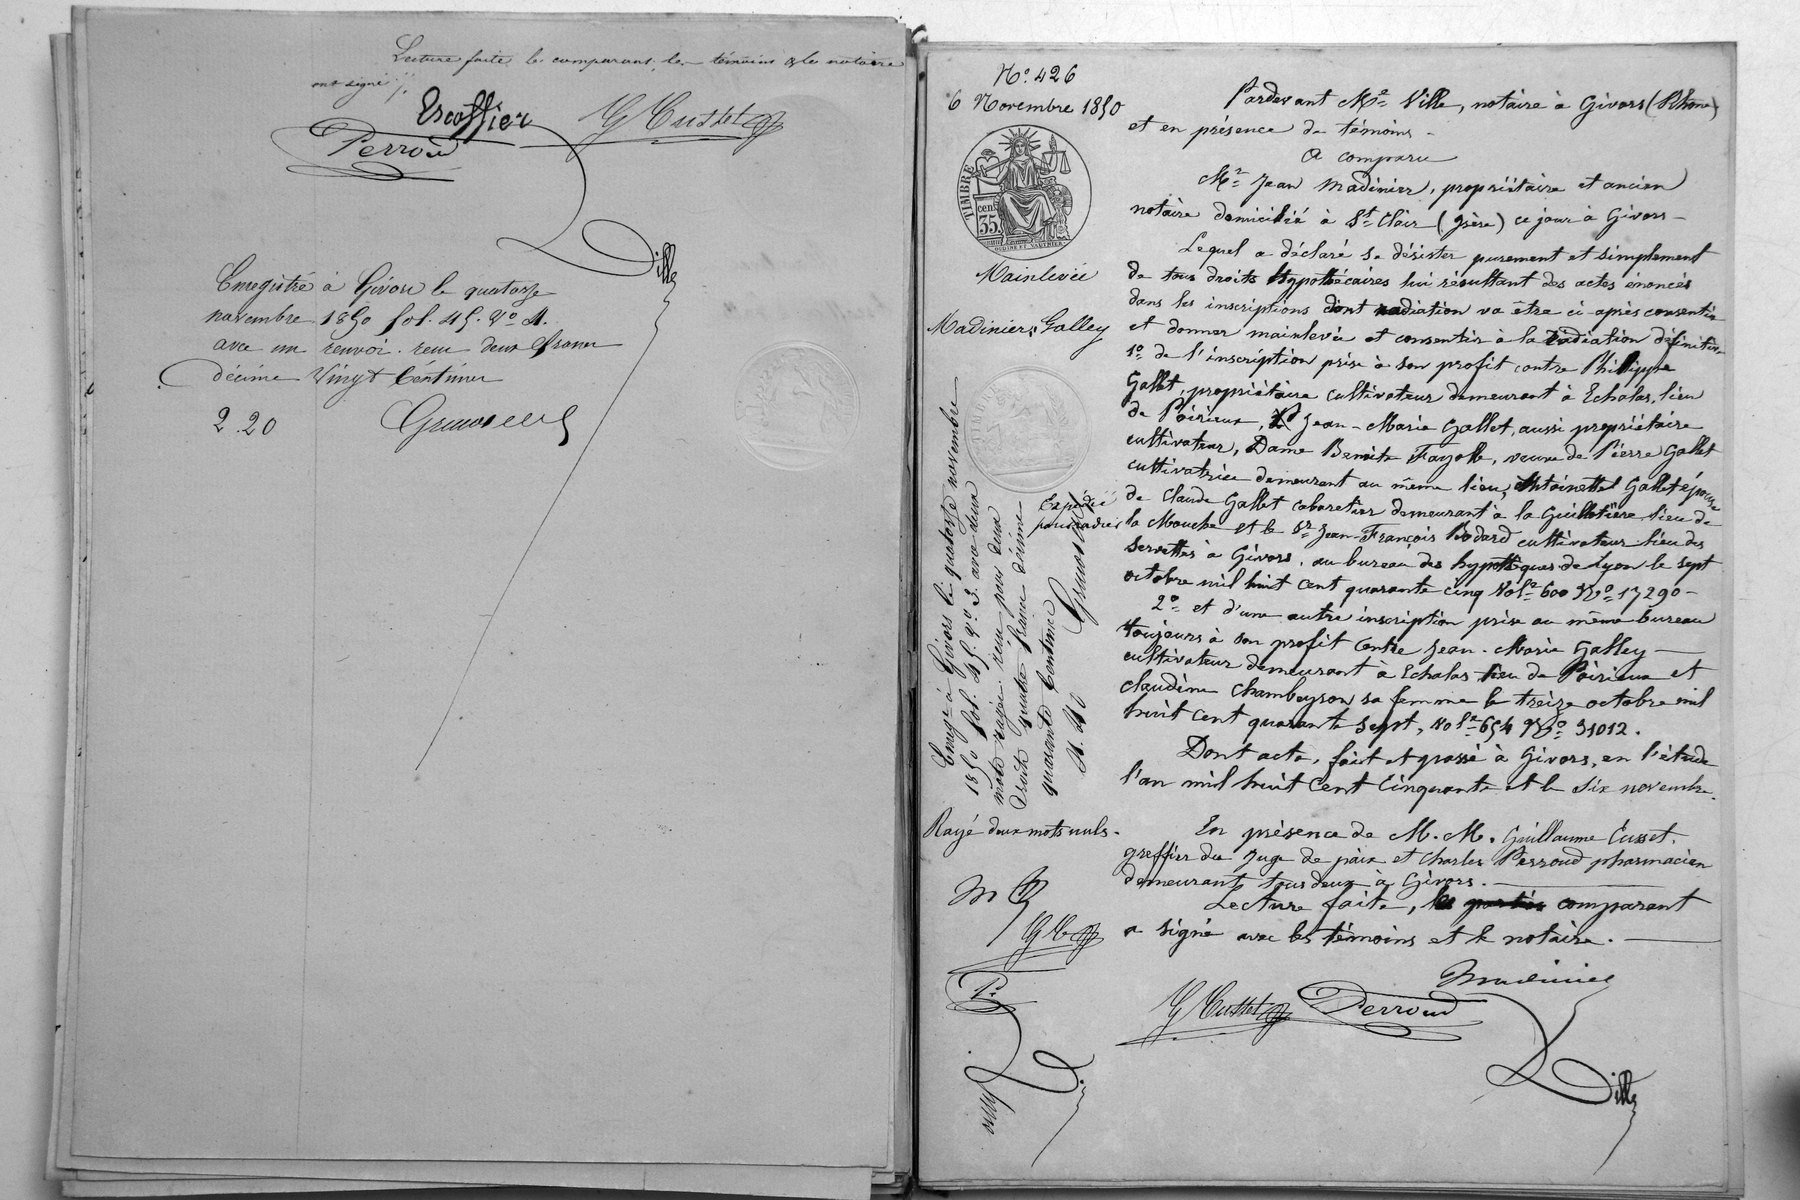 Lecture faite le comparant, les témoins & le notaire
ont signé
Escoffier G Cusset
Perroud
Ville
Enregistré à Givors le quatorze
novembre 1850 fol. 45. Vº 4.
avec un renvoi. reçu deux francs
décime Vingt Centimes
2.20
Nº 426
6 Novembre 1850
TIMBRE
cent
35
OUDINÉ ET VAUTHIER
Mainlevée
Madinier; Galley
Enregé à Givors le quatorze novembre
1850 fol. 45. Vº 3. avec deux
mots rayés. reçu pour deux
droits quatre francs décime
quarante Centimes
4.40
Expédié
Rayé deux mots nuls.
M
G C
P.
Ville
Pardevant Me Ville, notaire à Givors (Rhône)
et en présence de témoins -
A comparu
Mr Jean Madinier, propriétaire et ancien
notaire domicilié à St Clair (Isère) ce jour à Givors -
Lequel a déclaré se désister purement et simplement
de tous droits hypothécaires lui résultant des actes énoncés
dans les inscriptions dont radiation va être ci-après consentie
et donner mainlevée et consentir à la radiation définitive
1º de l'inscription prise à son profit contre Philippe
Gallet, propriétaire cultivateur demeurant à Echalas, lieu
de Poirieux, Jean-Marie Gallet, aussi propriétaire
cultivateur, Dame Benoite Fayolle, veuve de Pierre Gallet
cultivatrice demeurant au même lieu, Antoinette Gallet épouse
de Claude Gallet cabaretier demeurant à la Guillotière lieu de
la Mouche et le Sr Jean-François Bodard cultivateur lieu des
Servettes à Givors, au bureau des hypothèques de Lyon le sept
octobre mil huit cent quarante cinq Vol. 600 Nº 17290 -
2º et d'une autre inscription prise au même bureau
toujours à son profit contre Jean-Marie Galley
cultivateur demeurant à Echalas lieu de Poirieux et
Claudine Chambeyron sa femme le treize octobre mil
huit cent quarante sept, Vol. 654 Nº 31012.
Dont acte, fait et passé à Givors, en l'étude
l'an mil huit Cent Cinquante et le six novembre.
En présence de M.M. Guillaume Cusset,
greffier du Juge de paix et Charles Perroud pharmacien
demeurants tous deux à Givors.
Lecture faite, les parties comparant
a signé avec les témoins et le notaire.
Madinier
G Cusset Perroud
Ville